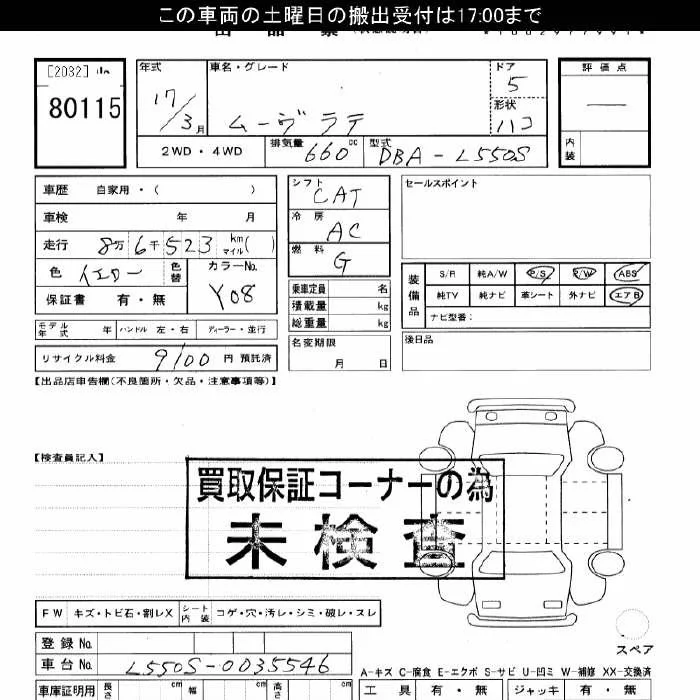 この車両の土曜日の搬出受付は17:00まで
[2032]
80115
年式
17/3月
車名・グレード
ムーヴ ラテ
ドア
5
形状
ハコ
評価点
―
内装
2WD・4WD
排気量 660cc
型式 DBA-L550S
車歴 自家用・( )
車検 年 月
走行 8万6千523 km マイル( )
色 イエロー 色替
カラーNo.
Y08
保証書 有・無
シフト
CAT
冷房
AC
燃料
G
セールスポイント
装備品
S/R 純A/W P/S P/W ABS
純TV 純ナビ 革シート 外ナビ エアB
ナビ型番:
乗車定員 名
積載量 kg
総重量 kg
モデル年式 年 ハンドル 左・右 ディーラー・並行
名変期限
月 日
後日品
リサイクル料金 9100 円 預託済
【出品店申告欄(不良箇所・欠品・注意事項等)】
【検査員記入】
買取保証コーナーの為
未検査
FW キズ・トビ石・割レX シート内装 コゲ・穴・汚レ・シミ・破レ・スレ
スペア
登録No.
車台No. L550S-0035546
A-キズ C-腐食 E-エクボ S-サビ U-凹ミ W-補修 XX-交換済
車庫証明用 長さ cm 幅 cm 高さ cm
工具 有・無 ジャッキ 有・無